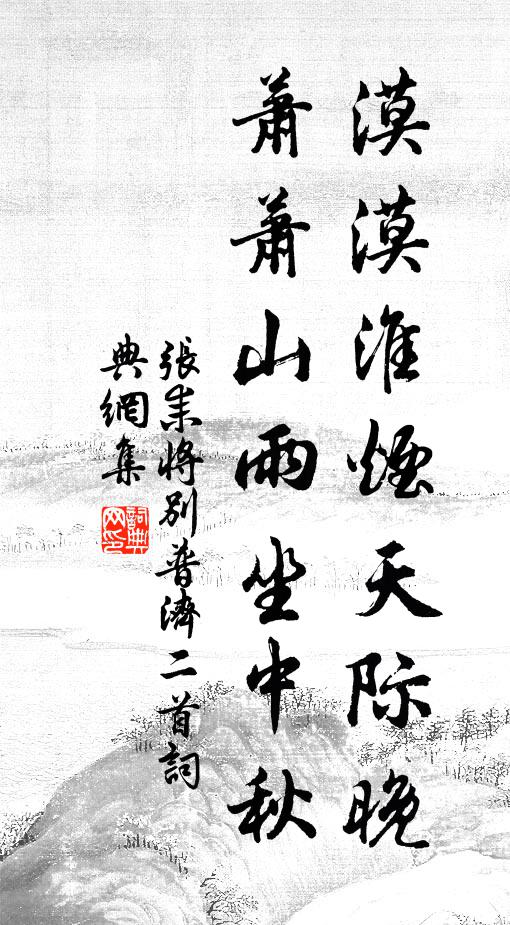 漠漠淮煙天际晚
蕭蕭山雨坐中秋
張耒將别普濟二首詞
典網集
詞典网印